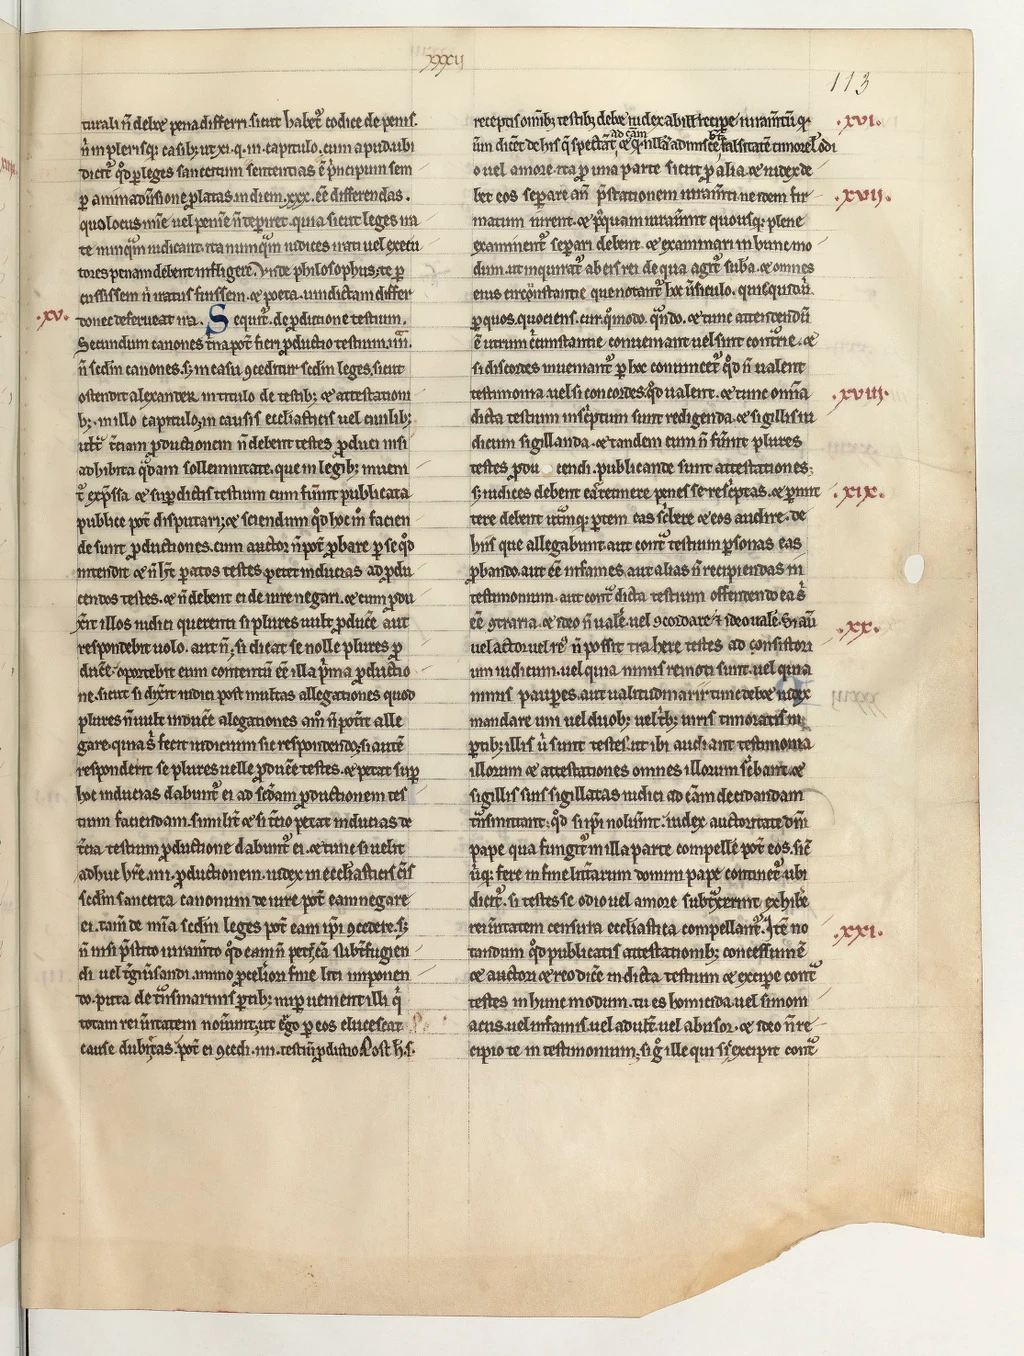 xxxij
113
turali ñ debꝫ pena differri. sicut habet᷑ codice de penis.
ñ in plerisqꝫ casibꝫ ut xi. q. iii. capitulo. cum apud ubi
dicit᷑ qd̓ ꝑ leges sanccitum sententias ē p̓ncipum sem
ꝑ animadu̓sione platas in diem .xxx. ēē differendas.
quo locus mīe uel penīe ñ te
te nunq̄m iudicant. ita nunq̄m iudices irati uel execu
tores penam debent infligere. Vnde philosophus. te ꝑ
cussissem ñ iratus fuissem. & poeta. uindictam differ
.xv.
donec deferueat ira. Sequit᷑. de ꝓductione testium.
Secundum canones t̓na pot̄ fieri ꝓductio testium. iiii.
ñ scd̄m canones. sꝫ in casu ꝯceditur scd̄m leges, sicut
ostendit alexander. in titulo de testibꝫ & attestationi
bꝫ. in illo capitulo, in causis eccliasticis uel ciuilibꝫ
ult᷑ t̓ciam ꝓductionem ñ debent testes ꝓduci nisi
adhibita q̓dam sollemnitate. que in legibꝫ inueni
t᷑ exp̄ssa & sup̱dictis testium cum fu̓int publicata
publice pot̄ disputari; & sciendum qd̓ hoc m̊ in facien
de sunt ꝓductiones. cum auctor ñ pot̄ ꝓbare ꝑ se qd̓
intendit & ñ ht̄ paratos testes. petet inducias ad ꝓdu
cendos testes. & ñ debent ei de iure negari. & cum ꝓdu
xerit illos iudici querenti si plures uult ꝓduce̓. aut
respondebit uolo. aut ñ; si dicat se nolle plures ꝓ
duce̓. oportebit eum contentū ēē illa p̓ma ꝓductio
ne. sicut si dixerit iudici post multas allegationes quod
plures ñ uult induce̓ alegationes
gare. quia s̓ fecit iudicium sic respondendo; si autē
responderit se plures uelle ꝓduce̓ testes. & petat sup̱
hoc inducias dabunt᷑ ei ad scd̄am ꝓductionem tes
tium faciendam. simil̓it̓ & si t̓cio petat inducias de
t̓cia testium ꝓductione dabunt᷑ ei. & tunc si uelit
adhuc hr̄e .iiii. ꝓductionem. iudex in eccl̓iasticis
scd̄m sanccita canonum de iure pot̄ eam negare
ei. tam̄ de mīa scd̄m leges pot̄ eam ip̄i ꝯcedere. sꝫ
ñ nisi p̓stito iuram̄to qd̓ eam ñ petit ea subt̓fugien
di uel
to. puta de t̓nsmarinis ꝑtibꝫ nup̱ uenerint illi q̓
totam rei u̓itatem nouerint, ut ergo ꝑ eos elucescat
cause dubietas. pot̄ ei ꝯcedi .iiii. testiū ꝓductio. Post h.s.
receptis om̄ibꝫ testibꝫ debꝫ iudex ab ill̓ recipe̓ iuramtū q
.xvi.
dicēt de his q̓ spectāt ad cām & q̓ nullā admiscēt falsitatē timore. l̓. odi
o uel amore. ita ꝓ una parte sicut ꝓ alia. & iudex de
bet eos separe an̄ p̄stationem iuram̄ti. ne idem fir
.xvii.
matum iurent. & p̓quam iurauerint quousqꝫ plene
examinent᷑ separi debent. & examinari in hunc mo
dum. ut inquirat᷑ ab eis rei de qua agit᷑ suba. & omnes
eius circūstantie que notant᷑ hoc u̓siculo. quis. quid. ubi.
ꝑ quos. quociens. cur. quomodo. q̄ndo. & tunc attendendū
ē utrum circumstantie conueniant uel sint cont̓rie. &
si discordes inueniant᷑ ꝑ hoc conuincet᷑ qd̓ ñ ualent
testimonia. uel si concordes. qd̓ ualent. & tunc omīa
.xviii.
dicta testium in sc̓ptum sunt redigenda. & sigillis iu
dicum sigillanda. & tandem cum ñ fu̓int plures
testes ꝓdu cendi. publicande sunt attestationes;
sꝫ iudices debent eas retinere penes se resc̓ptas. & ꝑmit
.xix.
tere debent ut̓mqꝫ ꝑtem eas sc̓bere & eos audire. de
hiis que allegabunt. aut cont᷑ testium ꝑsonas eas
ꝓbando. aut ēē infames aut alias ñ recipiendas in
testimonium. aut cont᷑ dicta testium ostendendo ea s̓
ēē ꝯtraria. & ideo ñ uale̓. uel ꝯcordare & ideo uale̓. Si aū
.xx.
uel actor uel re᷒ ñ possit trahere testes ad consistori
um iudicum. uel quia nimis remoti sunt. uel quia
nimis paupes. aut ualitudinarii. tunc debꝫ iudex
mandare uni uel duobꝫ uel t̓bꝫ uiris
ꝑtibꝫ illis ubi sunt testes. ut ibi audiant testimonia
illorum & attestationes omnes illorum sc̓bant. &
sigillis suis sigillatas iudici ad cām decidandam
t̓nsmittant; qd̓ si ip̄i noluerint. iudex auctoritate dn̄i
pape qua fungit᷑ in illa parte compelle̓ pot̄ eos. sic̄
ubiqꝫ fere in fine litt̓arum domini pape continet᷑. ubi
dicit᷑. si testes se odio uel amore subt̓xerint exhibe̓
rei u̓itatem censura eccl̓iastica compellant᷑. Itē no
.xxi.
tandum qd̓ publicatis attestationibꝫ concessum ē
& auctori & reo dice̓ in dicta testium & excipe̓ cont᷑
testes in hunc modum. tu es homicida. uel simoni
acus. uel infamis. uel adult᷑. uel abusor. & ideo ñ re
cipio te in testimonium, si q̓ ille qui sic excipit cont᷑